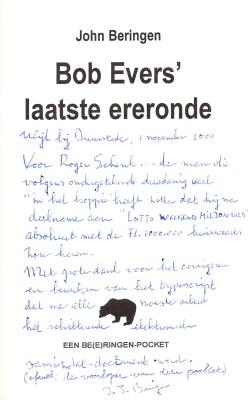 John Beringen
Bob Evers'
laatste ereronde
Wijk bij Duurstede, 1 november 2000
Voor Roger Schenk... de man die
volgens ondergetekende dusdanig veel
"in het koppie heeft zitten dat hij na
deelname aan "LOTTO WEEKEND MILJONAIRS"
absoluut met de Fl. 1.000.000 huiswaarts
kan keren.
Met grote dank voor het corrigeren
en bewaken van het typoscript
dat na alle noeste arbeid
het schitterende
EEN BE(E)RINGEN-POCKET
document werd.
(de voorloper van deze pocket)